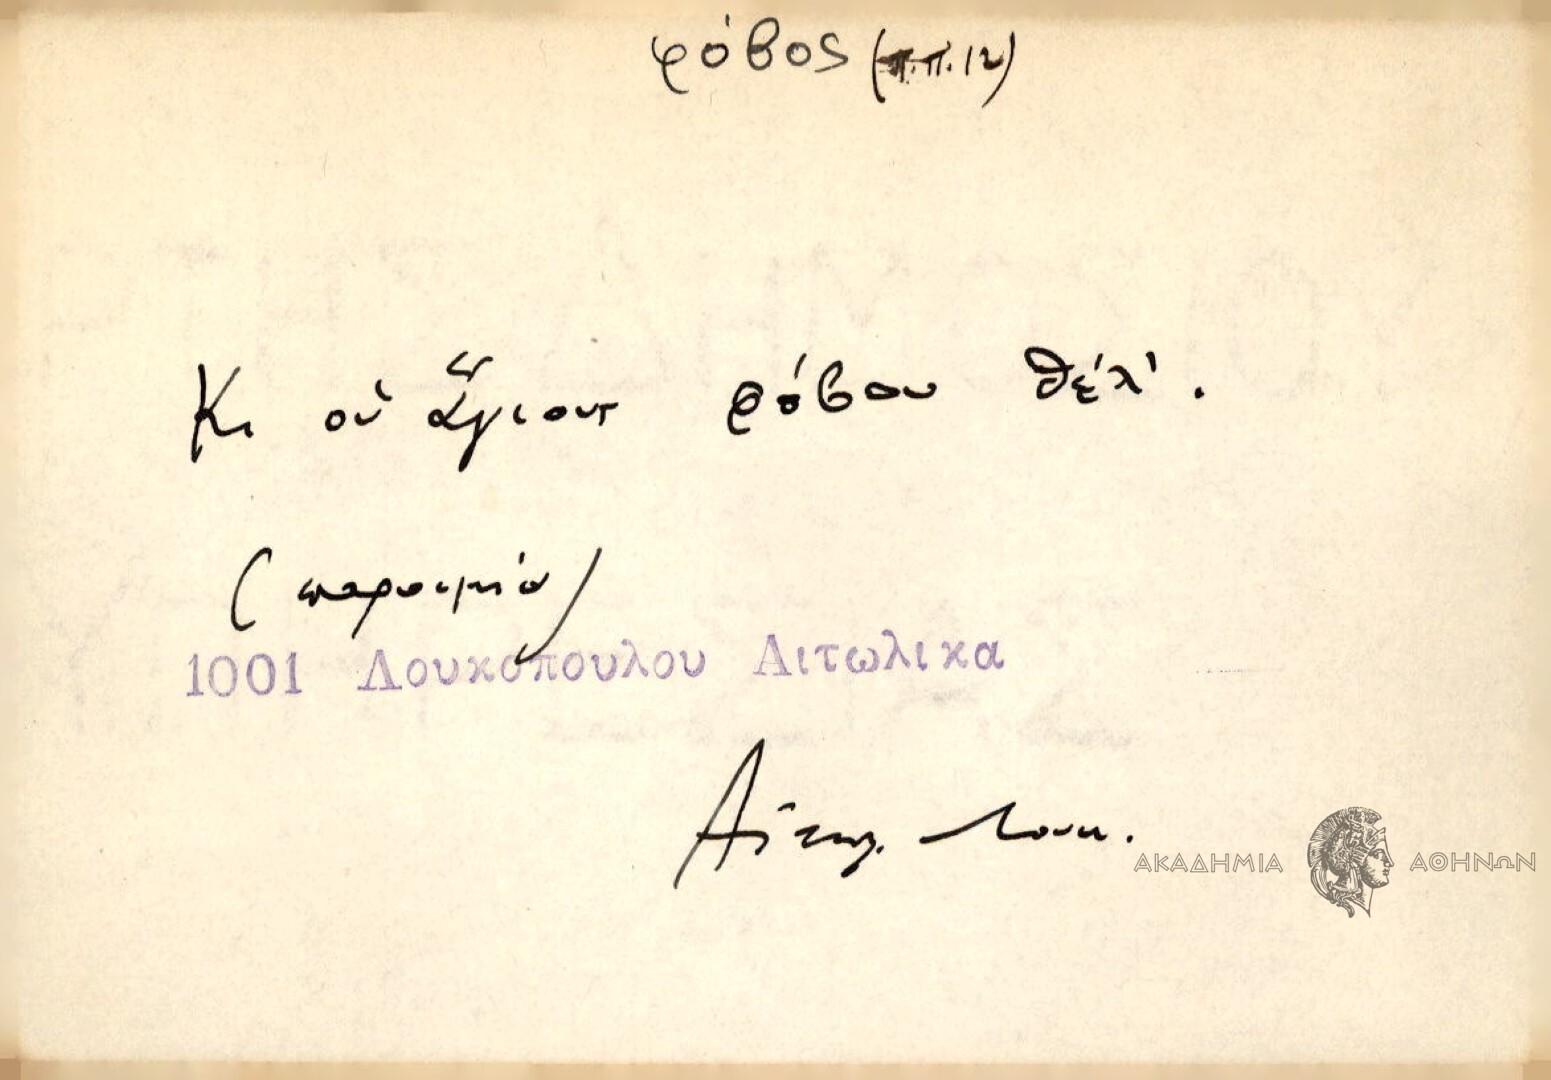 φόβος (π.π. 12)
Κι οὑ ἅγιους φόβου θέλ'.
(παροιμία)
1001 Λουκοπουλου Αιτωλικα
Αἰτωλ. Λουκ.
ΑΚΑΔΗΜΙΑ ΑΘΗΝΩΝ